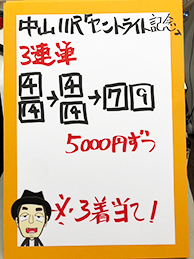 中山11R「セントライト記念」
3連単
4 → 4 → 7 9
14 14
5000円ずつ
※3着当て！